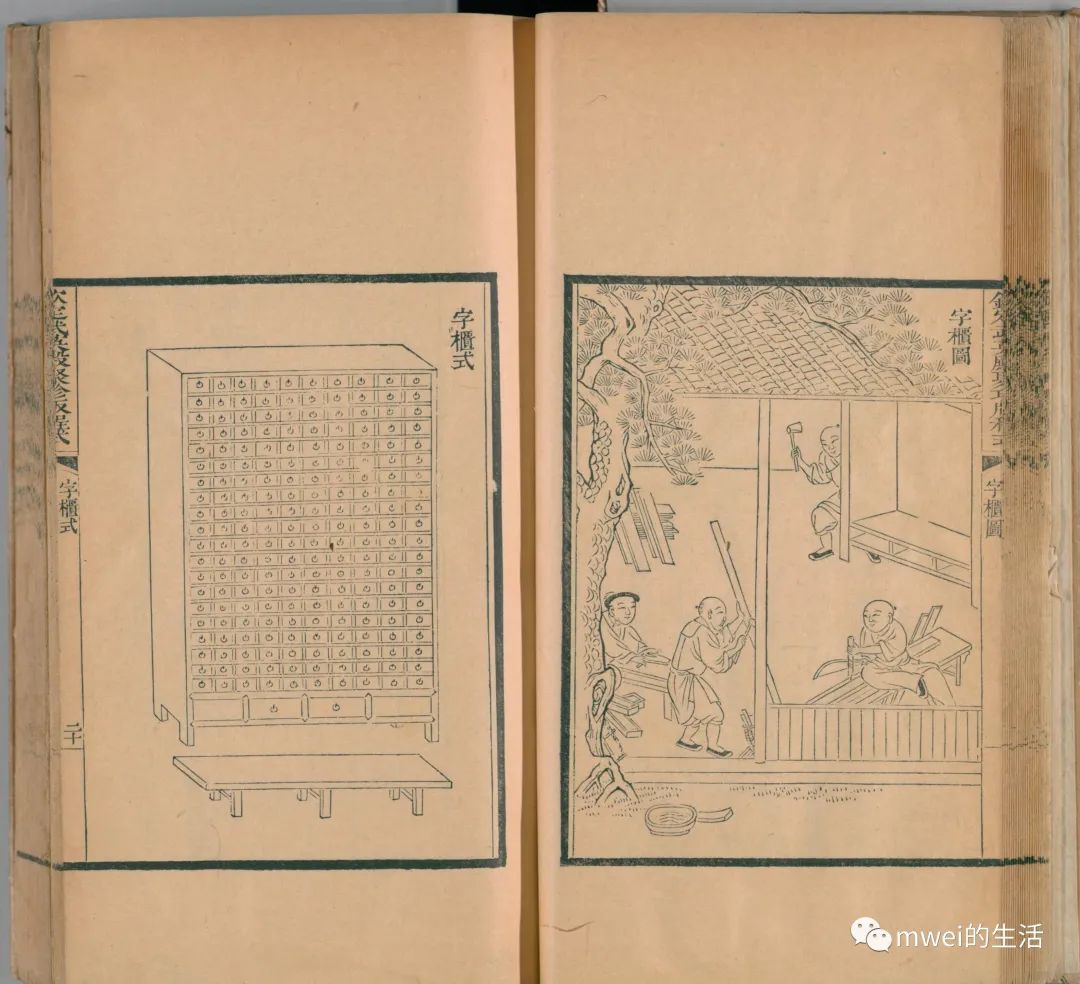 字櫃圖
字櫃圖
字櫃式
欽定武英殿聚珍版程式
字櫃式
二十
mwei的生活